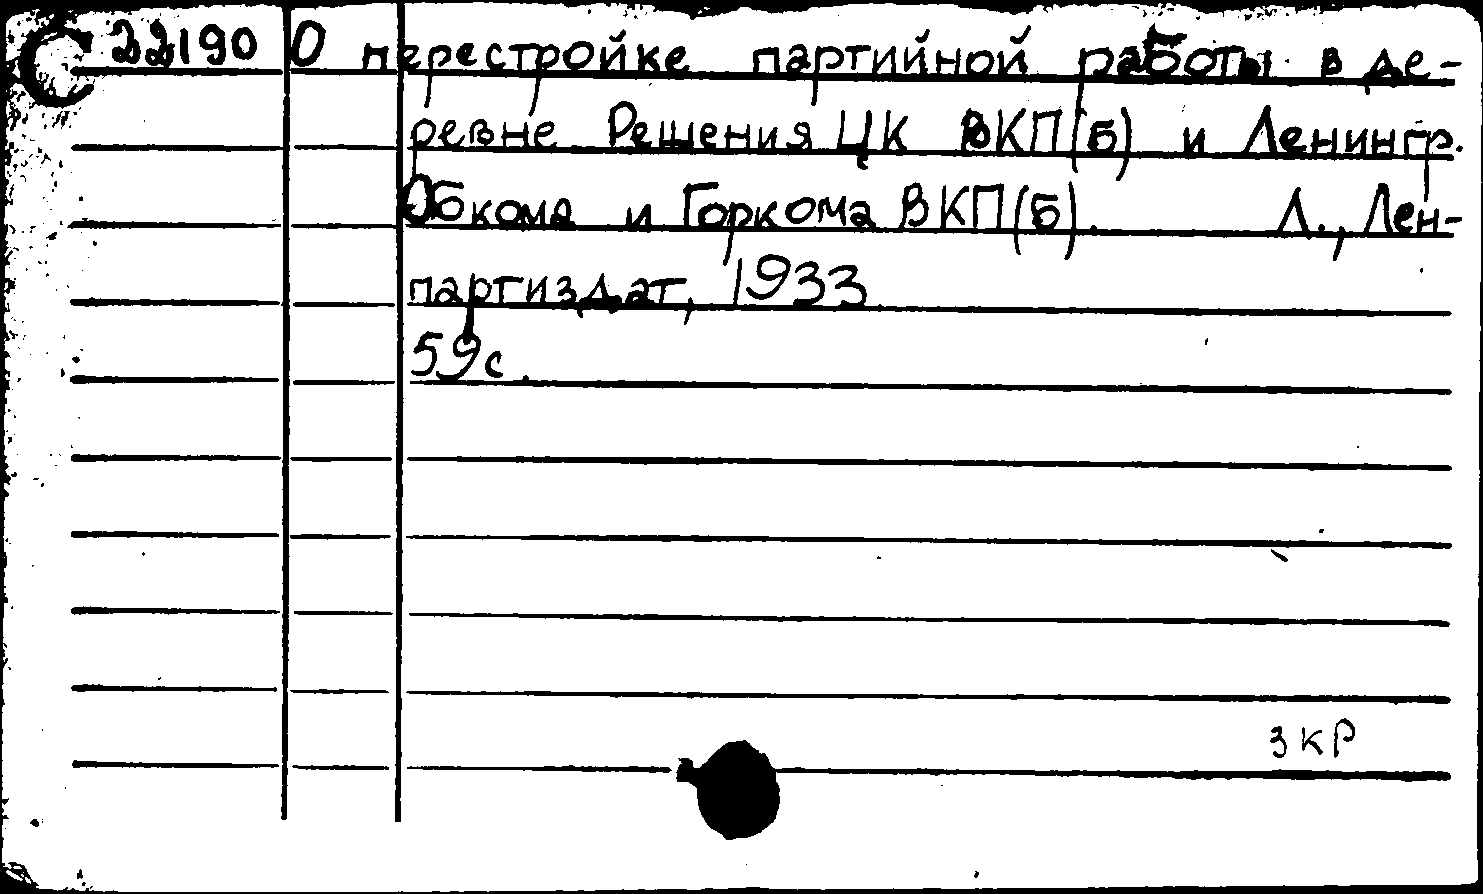 С 22190 О перестройке партийной работы в де-
ревне Решения ЦК ВКП(б) и Ленингр.
Обкома и Горкома ВКП(б). Л., Лен-
партиздат, 1933
59с.
3 кр